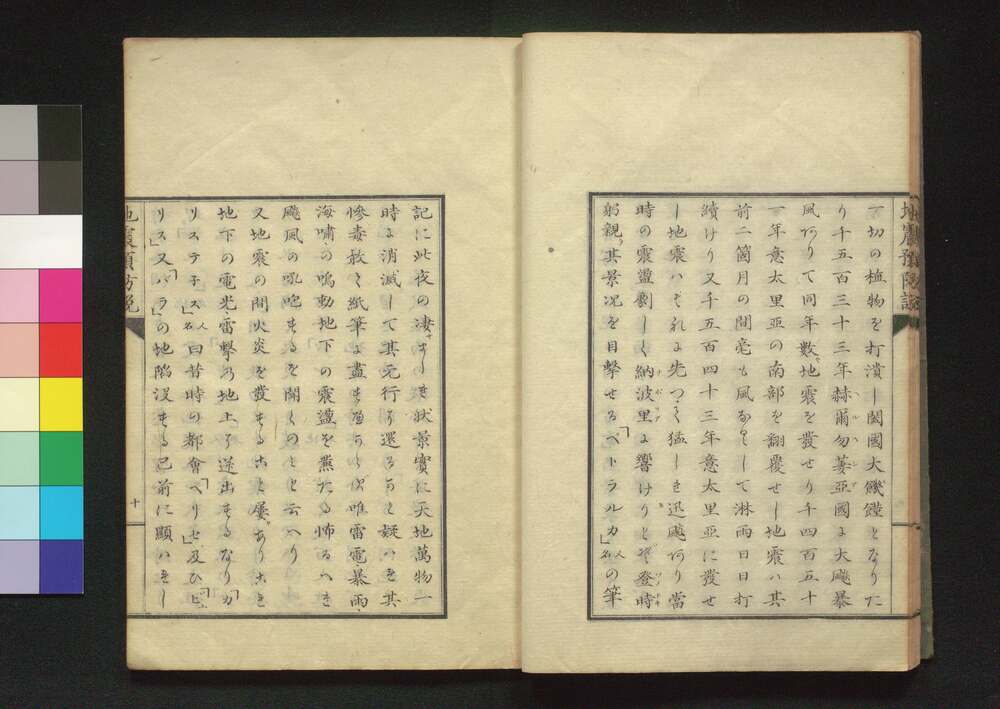 一切の植物を打潰し闔國大饑饉となりた
り千五百三十三年赫爾勿萋亞國に大颶暴
風ありて同年數地震を發せり千四百五十
一年意太里亞の南部を翻覆せし地震ハ其
前二箇月の間毫も風なくして淋雨日日打
續けり又千五百四十三年意太里亞に發せ
し地震ハそれに先つて猛しき迅颶あり當
時の震盪劇しく納波里に響けりと登時
躬親其景况を目擊せるペトラルカ人名の筆
地震預防説
記に此夜の凄しき狀景實に天地萬物一
時に消滅して其元行に還るかと疑ハき其
慘毒敢て紙筆に盡すへからす唯雷電暴雨
海嘯の鳴動地下の震盪を兼たる怖るへき
颶風の吼唬するを聞くのミと云へり
又地震の間火炎を發すること屢ありこれ
地下の電光雷擊の地上に送出するなりカ
リステ子ス人名曰昔時の都會ヘリセ及ひビュ
リス又バラの地陷沒する已前に顯ハれし
地震預防説
十